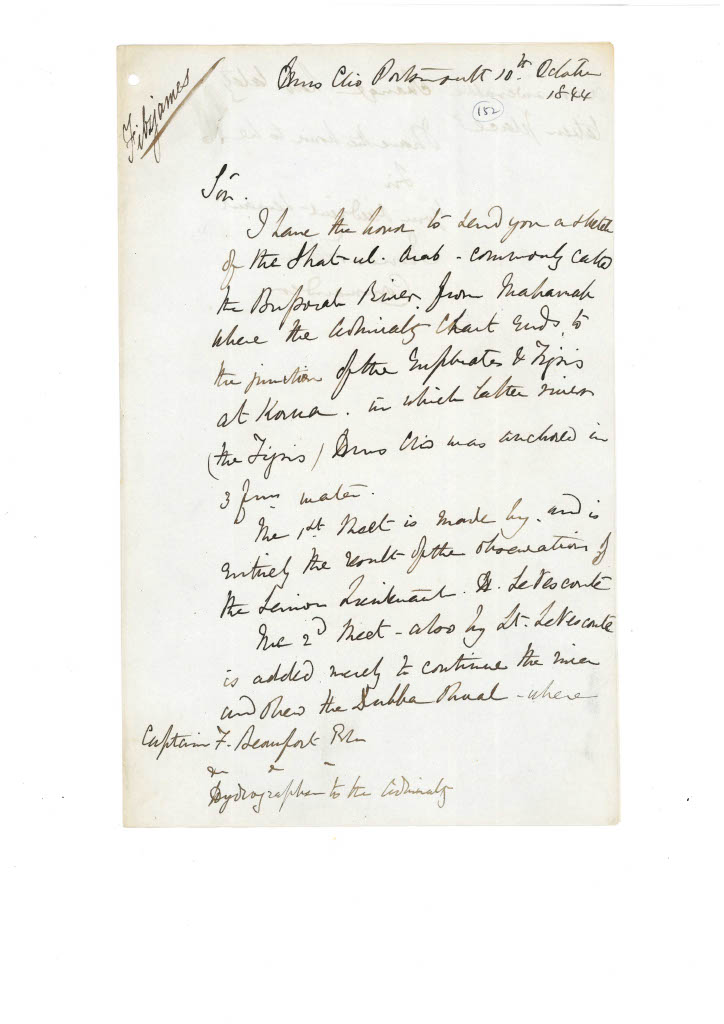 Fitzjames
HMS Clio Portsmouth 10th October
1844
152
Sir.
I have the honor to send you a sketch
of the Shat-ul-Arab - commonly called
the Bussorah River. from
where the Admiralty Chart ends, to
the junction of the Euphrates & Tigris
at Korna. in which latter river
(the Tigris) HMS Clio was anchored in
3 fms water.
The 1st Sheet is made by, and is
entirely the result of the observations of
the Senior Lieutenant. H. LeVesconte
The 2d Sheet - also by Lt. LeVesconte
is added merely to continue the river
and shew the Dubba Shoal - where
Captain F. Beaufort RN
Hydrographer to the Admiralty